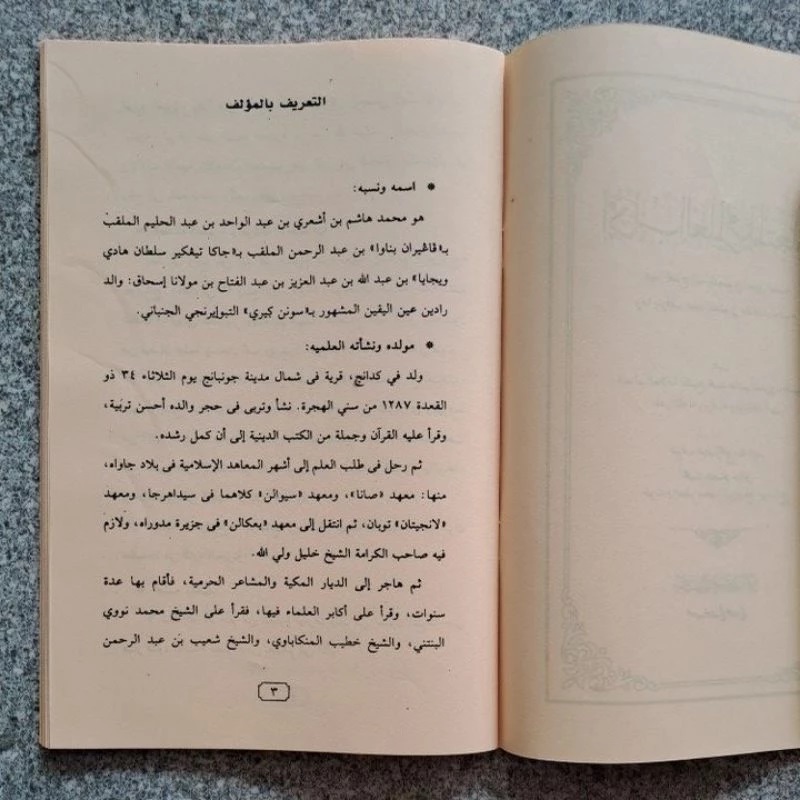 التعريف بالمؤلف
* اسمه ونسبه:
هو محمد هاشم بن أشعري بن عبد الواحد بن عبد الحليم الملقب
بـ«ڤاڠيران بناوا» بن عبد الرحمن الملقب بـ«جاكا تيڠكير سلطان هادي
ويجايا» بن عبد الله بن عبد العزيز بن عبد الفتاح بن مولانا إسحاق: والد
رادين عين اليقين المشهور بـ«سونن كيري» التبوإيرنجي الجنباني.
* مولده ونشأته العلميه:
ولد في كدانج، قرية فى شمال مدينة جونبانج يوم الثلاثاء ٣٤ ذو
القعدة ١٢٨٧ من سني الهجرة. نشأ وتربى فى حجر والده أحسن تربية،
وقرأ عليه القرآن وجملة من الكتب الدينية إلى أن كمل رشده.
ثم رحل فى طلب العلم إلى أشهر المعاهد الإسلامية فى بلاد جاواه،
منها: معهد «صانا»، ومعهد «سيوالن» كلاهما فى سيداهرجا، ومعهد
«لانجيتان» توبان، ثم انتقل إلى معهد «بعكالن» فى جزيرة مدوراه، ولازم
فيه صاحب الكرامة الشيخ خليل ولي الله.
ثم هاجر إلى الديار المكية والمشاعر الحرمية، فأقام بها عدة
سنوات، وقرأ على أكابر العلماء فيها، فقرأ على الشيخ محمد نووي
البنتني، والشيخ خطيب المنكاباوي، والشيخ شعيب بن عبد الرحمن
٣